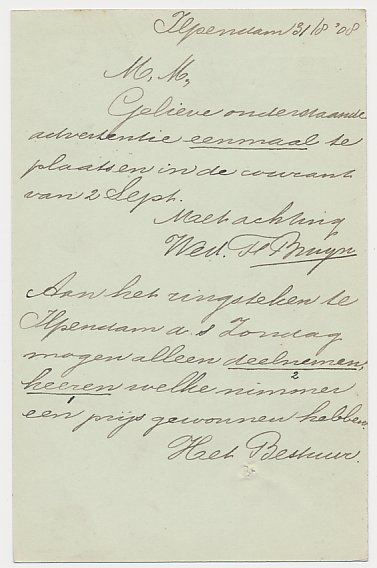 Ilpendam 31/8 '08
M, M,
Gelieve onderstaande
advertentie eenmaal te
plaatsen in de courant
van 2 Sept.
Met achting
Wed. Bruyn
Aan het ringsteken te
Ilpendam a. s Zondag
mogen alleen deelnemen,
2
heeren welke nimmer
1
een prijs gewonnen hebben.
Het Bestuur.